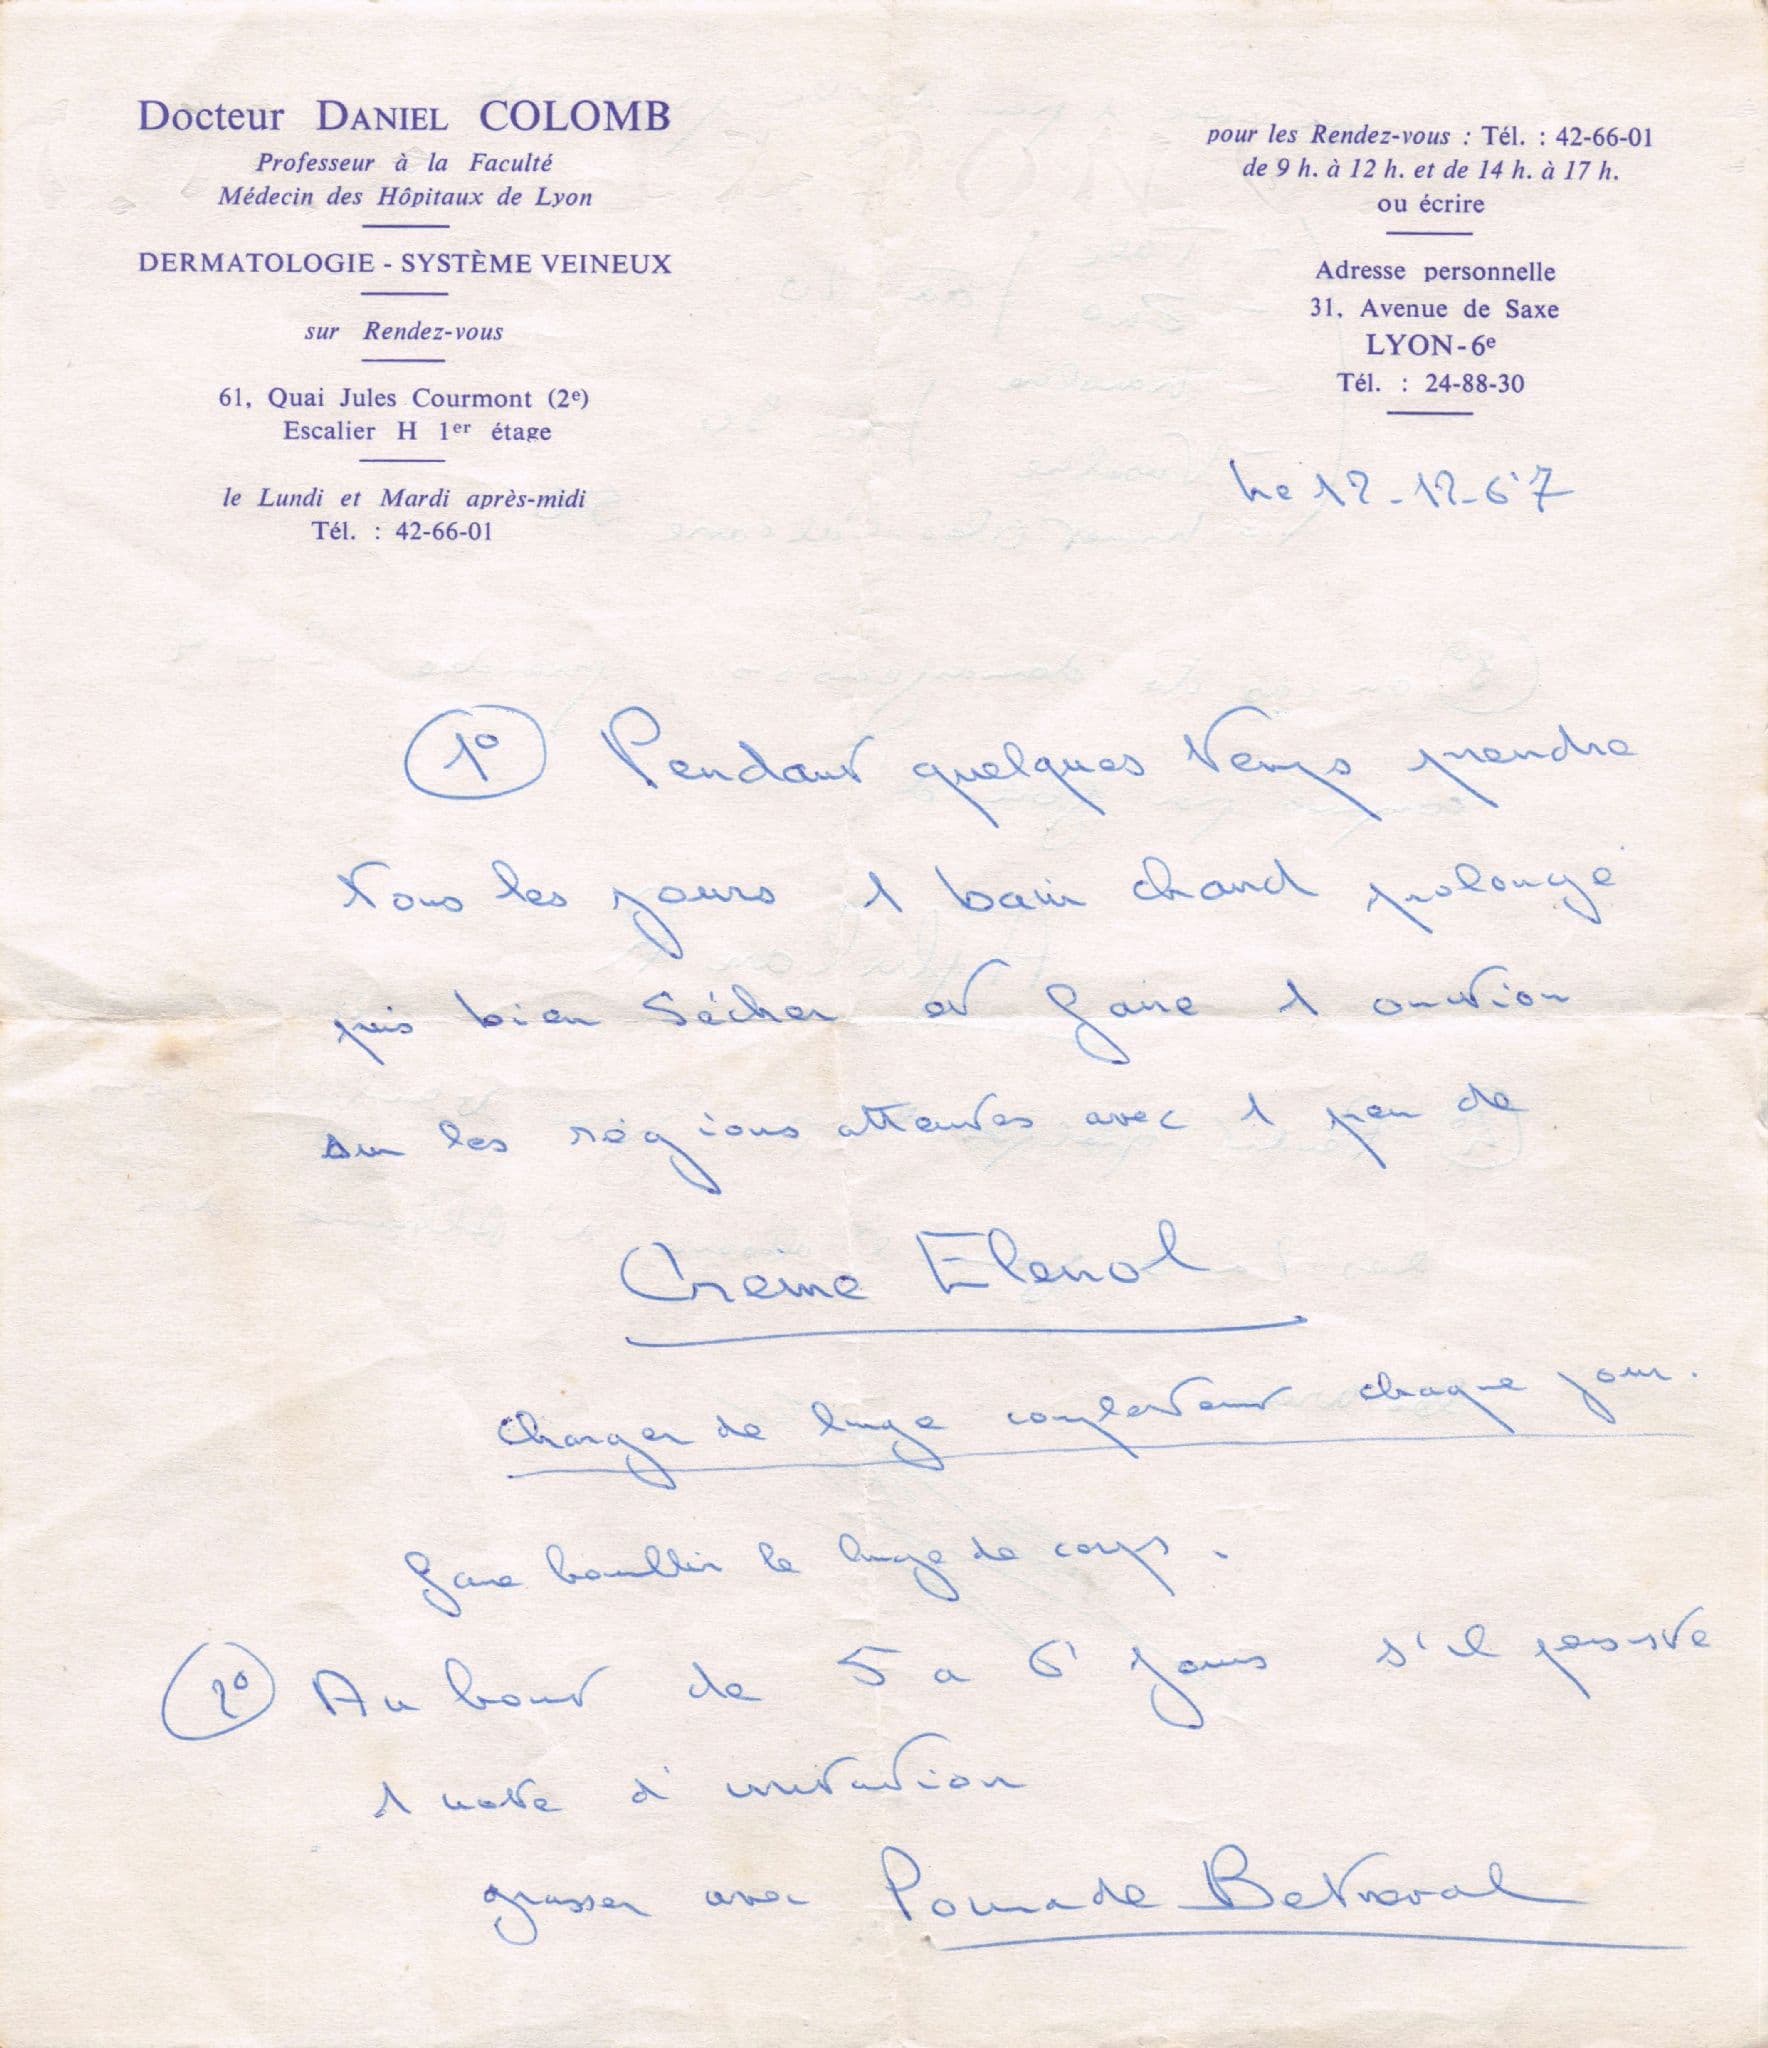 Docteur DANIEL COLOMB
Professeur à la Faculté
Médecin des Hôpitaux de Lyon
DERMATOLOGIE - SYSTÈME VEINEUX
sur Rendez-vous
61, Quai Jules Courmont (2e)
Escalier H 1er étage
le Lundi et Mardi après-midi
Tél. : 42-66-01
pour les Rendez-vous : Tél. : 42-66-01
de 9 h. à 12 h. et de 14 h. à 17 h.
ou écrire
Adresse personnelle
31, Avenue de Saxe
LYON-6e
Tél. : 24-88-30
le 12-12-67
1° Pendant quelques temps prendre
tous les jours 1 bain chaud prolongé
puis bien sécher et faire 1 onction
sur les régions atteintes avec 1 peu de
Crème Elenol
changer de linge complètement chaque jour.
faire bouillir le linge de corps.
2° Au bout de 5 a 6 jours s'il persiste
1 note d'irritation
graisser avec Pommade Betneval